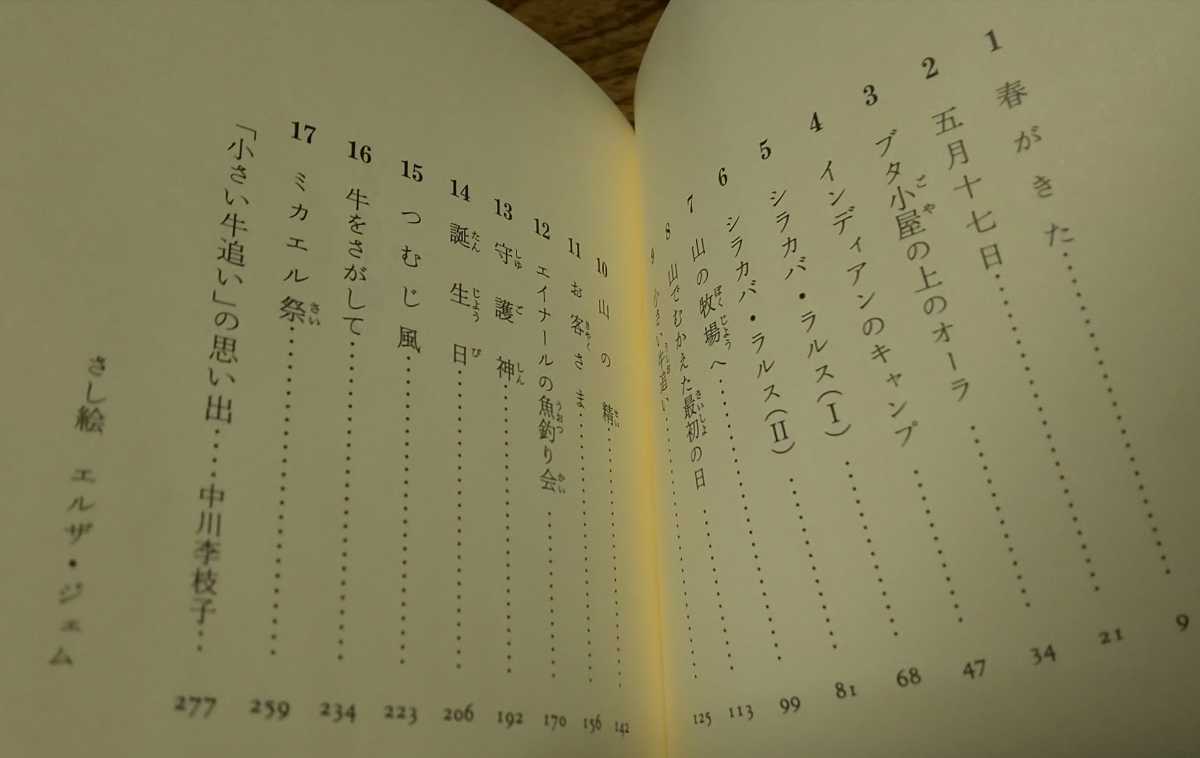 1 春がきた……………9
2 五月十七日……………21
3 ブタ小屋の上のオーラ……………34
4 インディアンのキャンプ……………47
5 シラカバ・ラルス(Ⅰ)……………68
6 シラカバ・ラルス(Ⅱ)……………81
7 山の牧場へ……………99
8 山でむかえた最初の日……………113
9 小さい牛追い……………125
10 山の精……………142
11 お客さま……………156
12 エイナールの魚釣り会……………170
13 守護神……………192
14 誕生日……………206
15 つむじ風……………223
16 牛をさがして……………234
17 ミカエル祭……………259
「小さい牛追い」の思い出……中川李枝子……277
さし絵 エルザ・ジェム